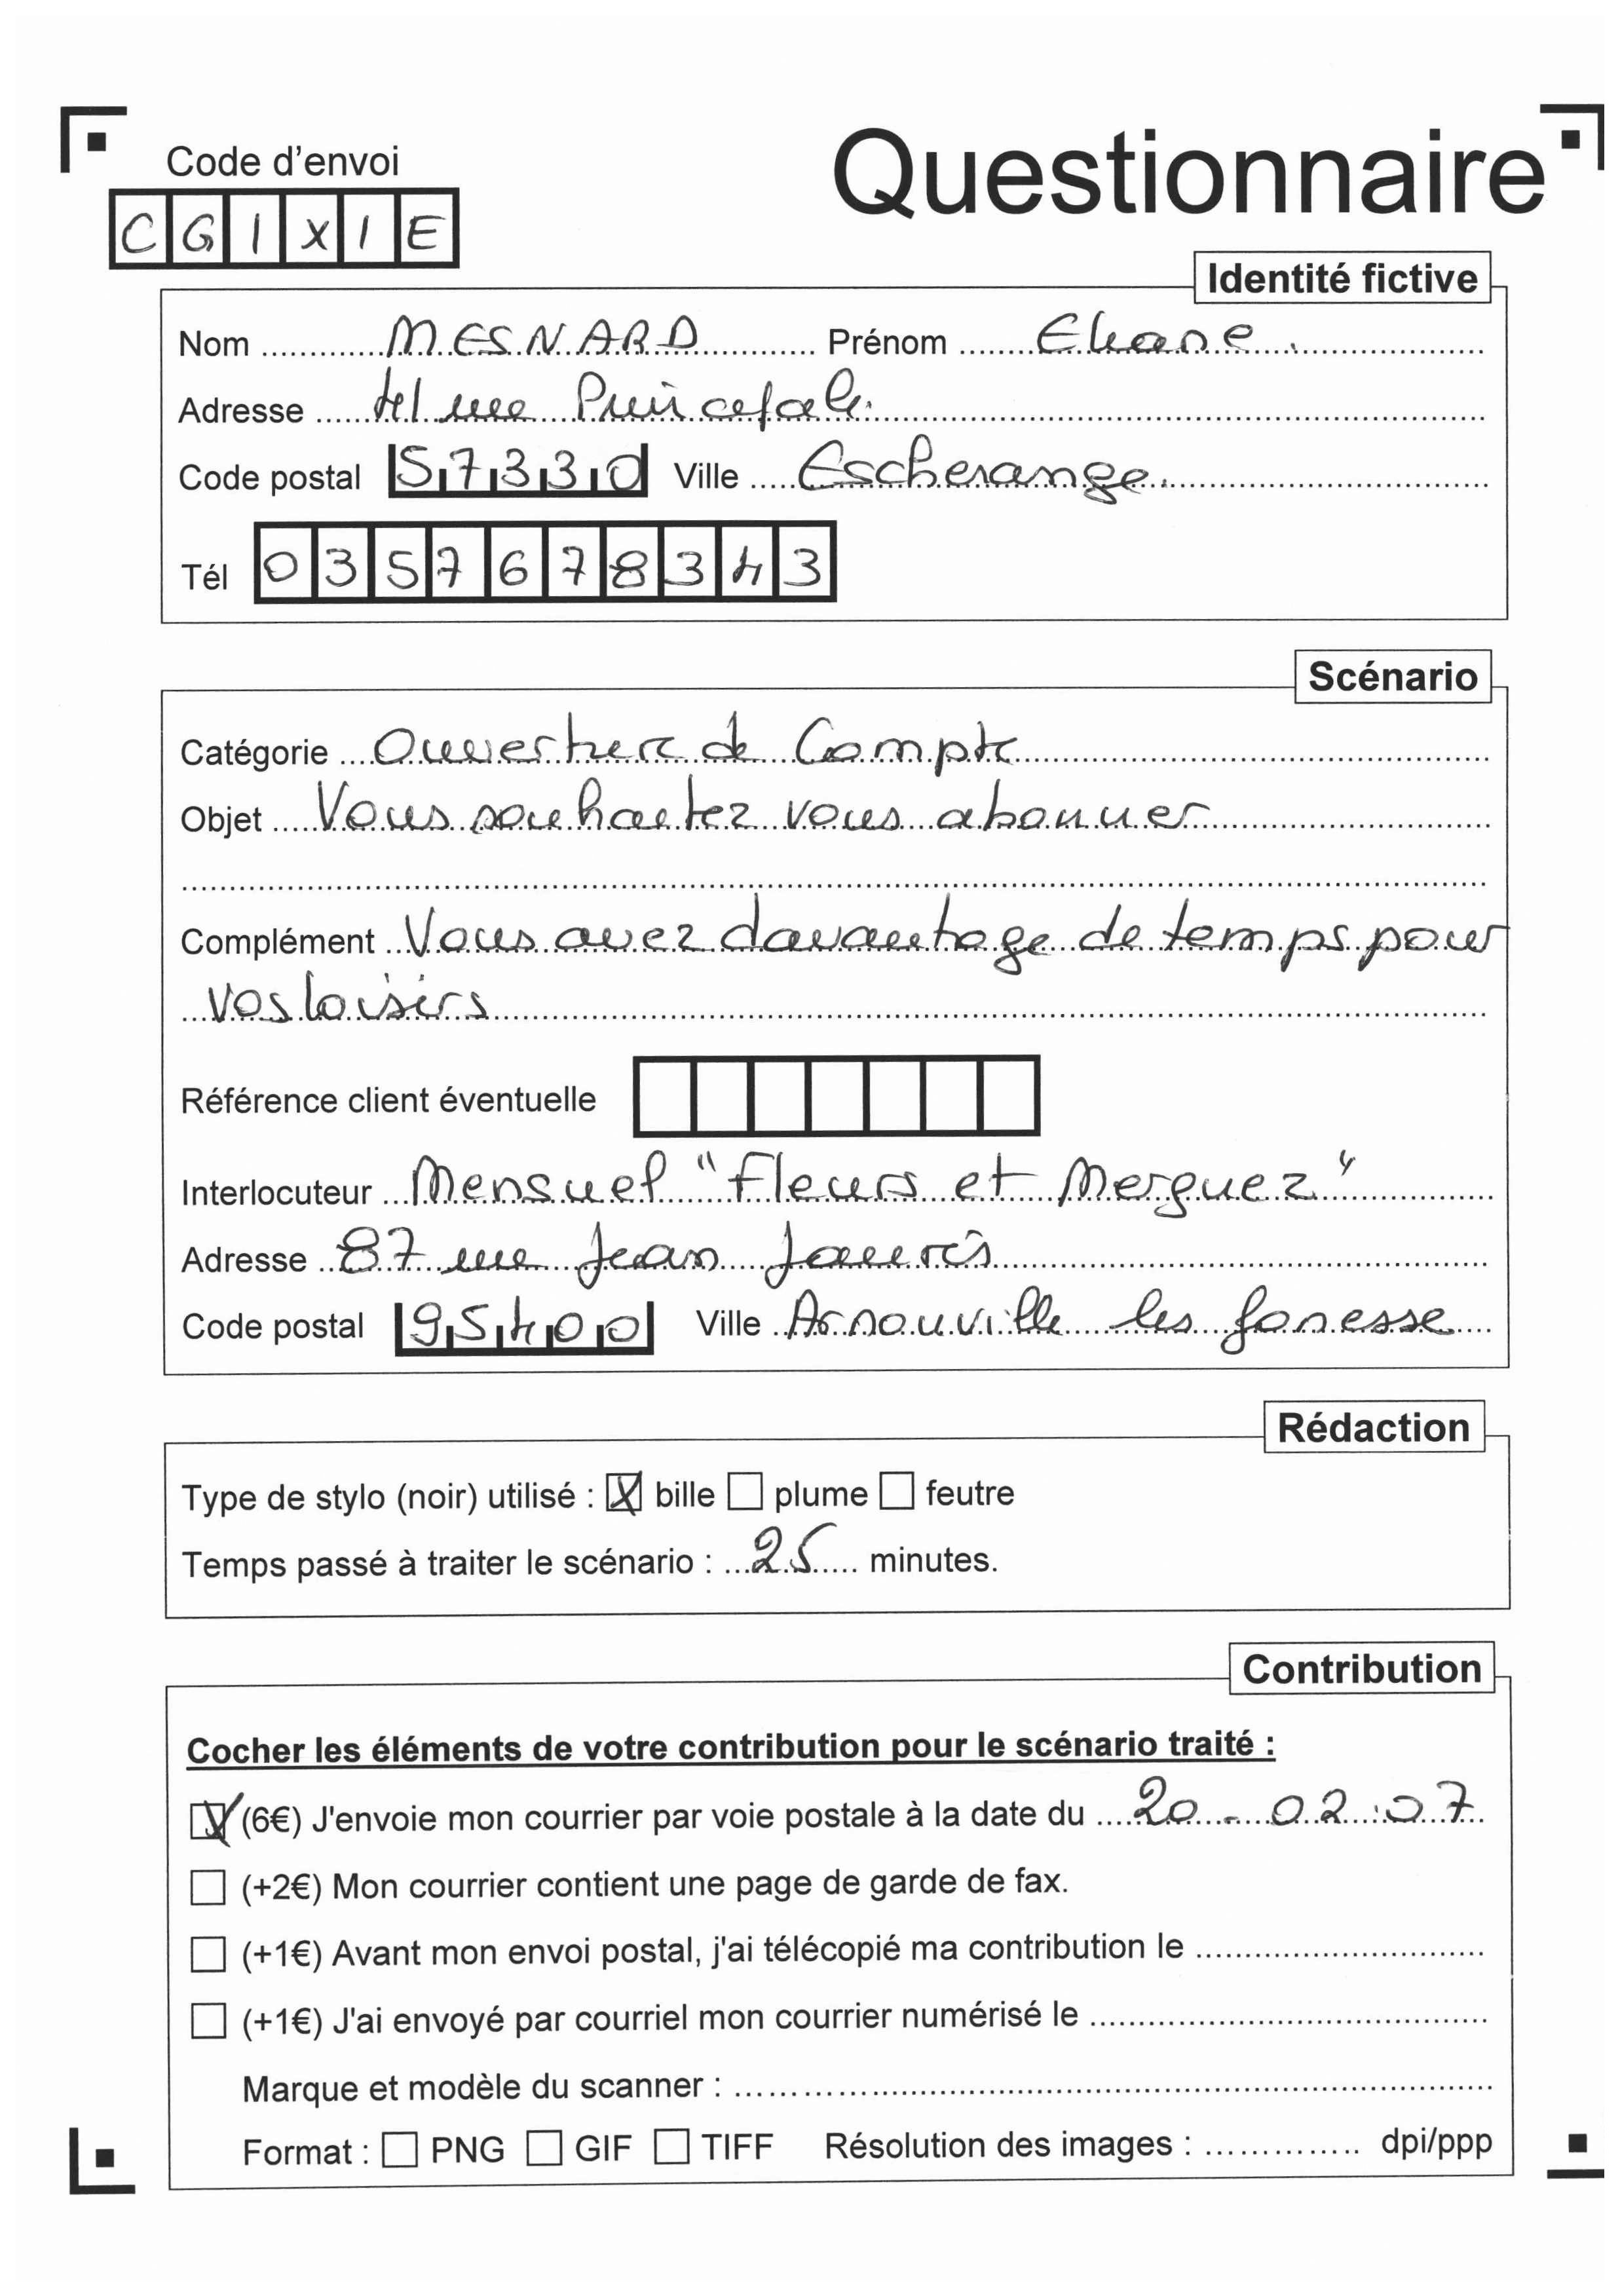 Code d'envoi
Questionnaire
C G 1 X 1 E
Identité fictive
Nom MESNARD Prénom Eliane.
Adresse 41 rue Principale.
Code postal 57330 Ville Escherange.
Tél 0357678343
Scénario
Catégorie Ouverture de Compte
Objet Vous souhaitez vous abonner
Complément Vous avez davantage de temps pour
vos loisirs
Référence client éventuelle
Interlocuteur Mensuel "Fleurs et Merguez"
Adresse 87 rue Jean Jaurès
Code postal 95400 Ville Arnouville les gonesse
Rédaction
Type de stylo (noir) utilisé : X bille plume feutre
Temps passé à traiter le scénario : 25 minutes.
Contribution
Cocher les éléments de votre contribution pour le scénario traité :
X (6€) J'envoie mon courrier par voie postale à la date du 20-02-07
(+2€) Mon courrier contient une page de garde de fax.
(+1€) Avant mon envoi postal, j'ai télécopié ma contribution le
(+1€) J'ai envoyé par courriel mon courrier numérisé le
Marque et modèle du scanner :
Format : PNG GIF TIFF Résolution des images : dpi/ppp